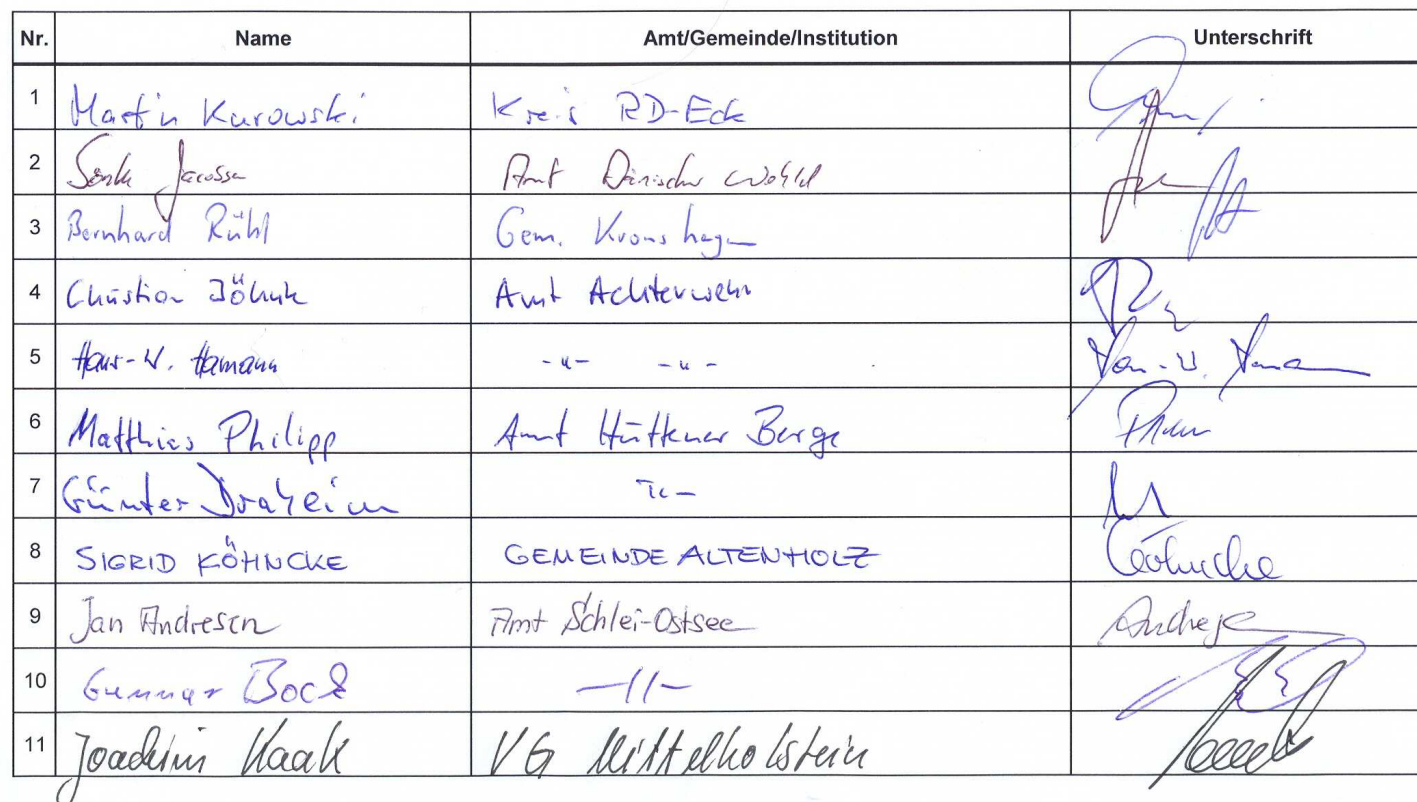 Nr. Name Amt/Gemeinde/Institution Unterschrift
1 Martin Kurowski Kreis RD-Eck
2 Sönke Jacobsen Amt Dänischer Wohld
3 Bernhard Rühl Gem. Kronshagen
4 Christian Böhnk Amt Achterwehr
5 Hans-W. Hamann -"- -"-
6 Matthias Philipp Amt Hüttener Berge
7 Günter Draheim -"-
8 SIGRID KÖHNCKE GEMEINDE ALTENHOLZ Köhncke
9 Jan Andresen Amt Schlei-Ostsee Andresen
10 Gunnar Bock -//-
11 Joachim Kaak VG Mittelholstein